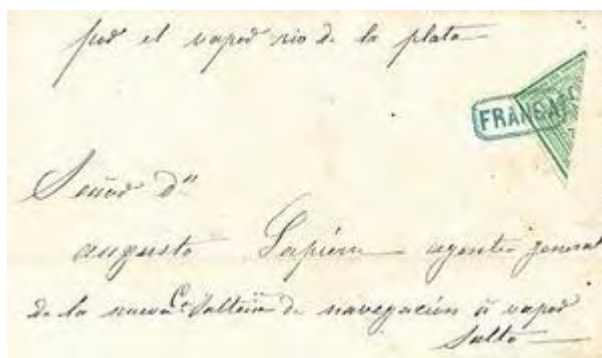 por el vapor rio de la plata
FRANCA
Señor Dn
augusto Sapiere agente general
de la nueva Ca. Salteña de navegación á vapor
Salto